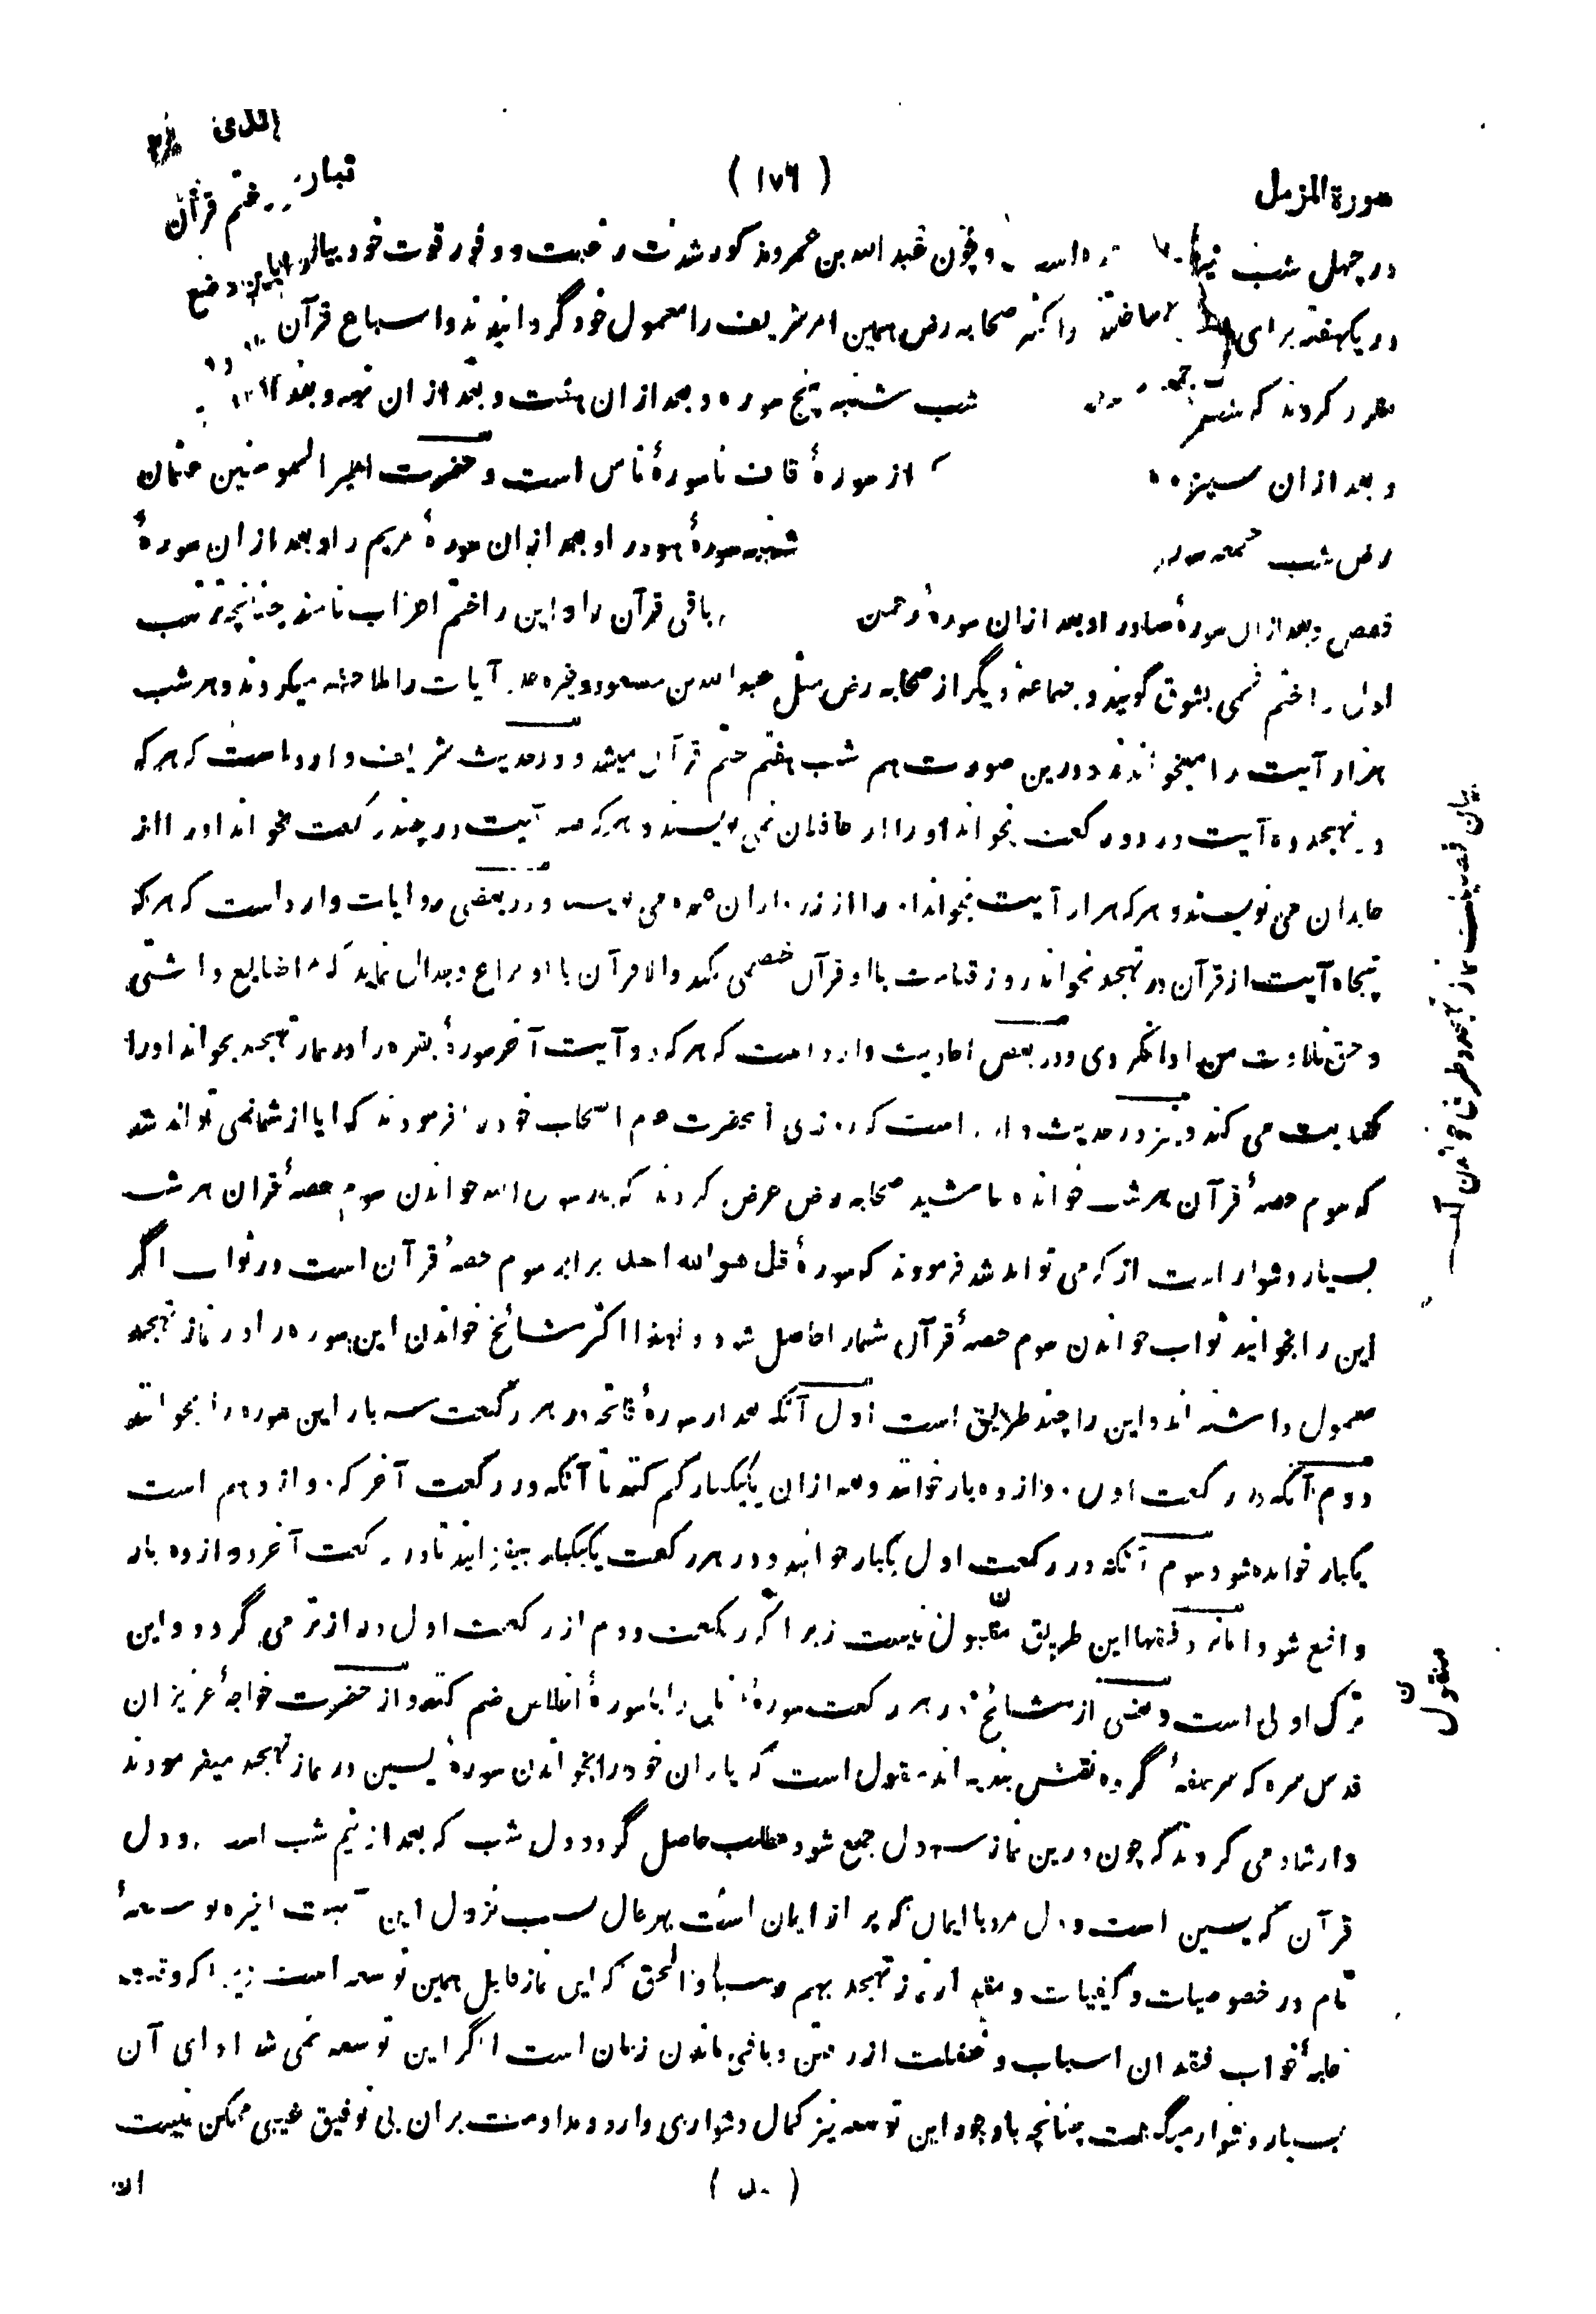 سورة المزمل
( ۱۷۶ )
تبارک
ختم قرآن
در چهل شب نیز است و چون عبد الله بن عمرو مذکور شدت رغبت و وفور قوت خود بیان
در یکهفته برای صحابه رض همین امر شریف را معمول خود گردانیدند و اسباع قرآن
مقرر کردند که شب شنبه پنج سوره و بعد از ان هفت و بعد از ان نهه و بعد
و بعد از ان سیزده از سورهٔ قاف تا سورهٔ ناس است و حضرت امیر المومنین عثمان
رض شب جمعه شنبه سورهٔ هود را و بعد از ان سورهٔ مریم را و بعد از ان سورهٔ
قصص و بعد از ان سورهٔ صاد را و بعد از ان سورهٔ رحمن باقی قرآن را و این را ختم احزاب نامند چنانچه ترتیب
اول را ختم فمی بشوق گویند و جماعهٔ دیگر از صحابه رض مثل عبد الله بن مسعود و غیره آیات را ملاحظه میکردند و هر شب
هزار آیت را میخواندند و درین صورت هم شب هفتم ختم قرآن میشد و در حدیث شریف وارد است که هر که
در تهجد ده آیت در دو رکعت بخواند او را از غافلان نمی نویسند و هر که صد آیت در چند رکعت بخواند او را از
عابدان می نویسند و هر که هزار آیت بخواند او را از زرداران عمده می نویسند و در بعضی روایات وارد است که هر که
پنجاه آیت از قرآن در تهجد نخواند روز قیامت با او قرآن خصمی کند والا قرآن با او نزاع و جدال نماید که مرا ضایع داشتی
و حق تلاوت من ادا نکردی و در بعض احادیث وارد است که هر که دو آیت آخر سورهٔ بقره را در نماز تهجد بخواند او را
کفایت می کند و نیز در حدیث وارد است که روزی آنحضرت صم اصحاب خود را فرمودند که ایا از شما نمی تواند شد
که سوم حصهٔ قرآن هر شب خوانده باشید صحابه رض عرض کردند که یا رسول الله خواندن سوم حصهٔ قرآن هر شب
بسیار دشوار است از که می تواند شد فرمودند که سورهٔ قل هو الله احد برابر سوم حصهٔ قرآن است در ثواب اگر
این را بخوانید ثواب خواندن سوم حصهٔ قرآن شما را حاصل شود و لهذا اکثر مشائخ خواندن این سوره را در نماز تهجد
معمول داشته اند و این را چند طریق است اول آنکه بعد از سورهٔ فاتحه در هر رکعت سه بار این سوره را بخوانند
دوم آنکه در رکعت اول دوازده بار خوانند و بعد از ان یکیکبار کم کنند تا آنکه در رکعت آخر که دوازدهم است
یکبار خوانده شود سوم آنکه در رکعت اول یکبار خوانند و در هر رکعت یکیکبار بیفزایند تا در رکعت آخر دوازده بار
واقع شود اما نزد فقها این طریق مقبول نیست زیرا که رکعت دوم از رکعت اول دراز تر می گردد و این
ترک اولی است و بعضی از مشائخ در هر رکعت سورهٔ مزمل را با سورهٔ اخلاص ضم کنند و از حضرت خواجهٔ عزیزان
قدس سره که سر حلقهٔ گروه نقشبندیه اند منقول است که یاران خود را بخواندن سورهٔ یسین در نماز تهجد میفرمودند
و ارشاد می کردند که چون درین نماز سه دل جمع شود مطلب حاصل گردد دل شب که بعد از نیم شب است و دل
قرآن که یسین است و دل مرد با ایمان که پر از ایمان است بهر حال سبب نزول این آیت اخیره توسعهٔ
تام در خصوصیات و کیفیات و مقدار نماز تهجد بهم رسید و الحق که این نماز قابل همین توسعه است زیرا که وقت
غلبهٔ خواب فقدان اسباب و غفلت از رفتن و باقی ماندن زمان است اگر این توسعه نمی شد ادای آن
بسیار دشوار میگشت چنانچه باوجود این توسعه نیز کمال دشواری دارد و مداومت بران بی توفیق غیبی ممکن نیست
الا
بیان فضیلت نماز تهجد و طریق خواندن آن
منقول